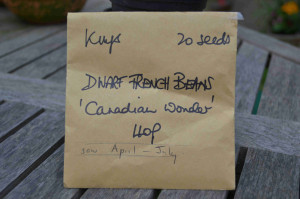 20 seeds
DWARF FRENCH BEANS
'Canadian Wonder'
sow April – July